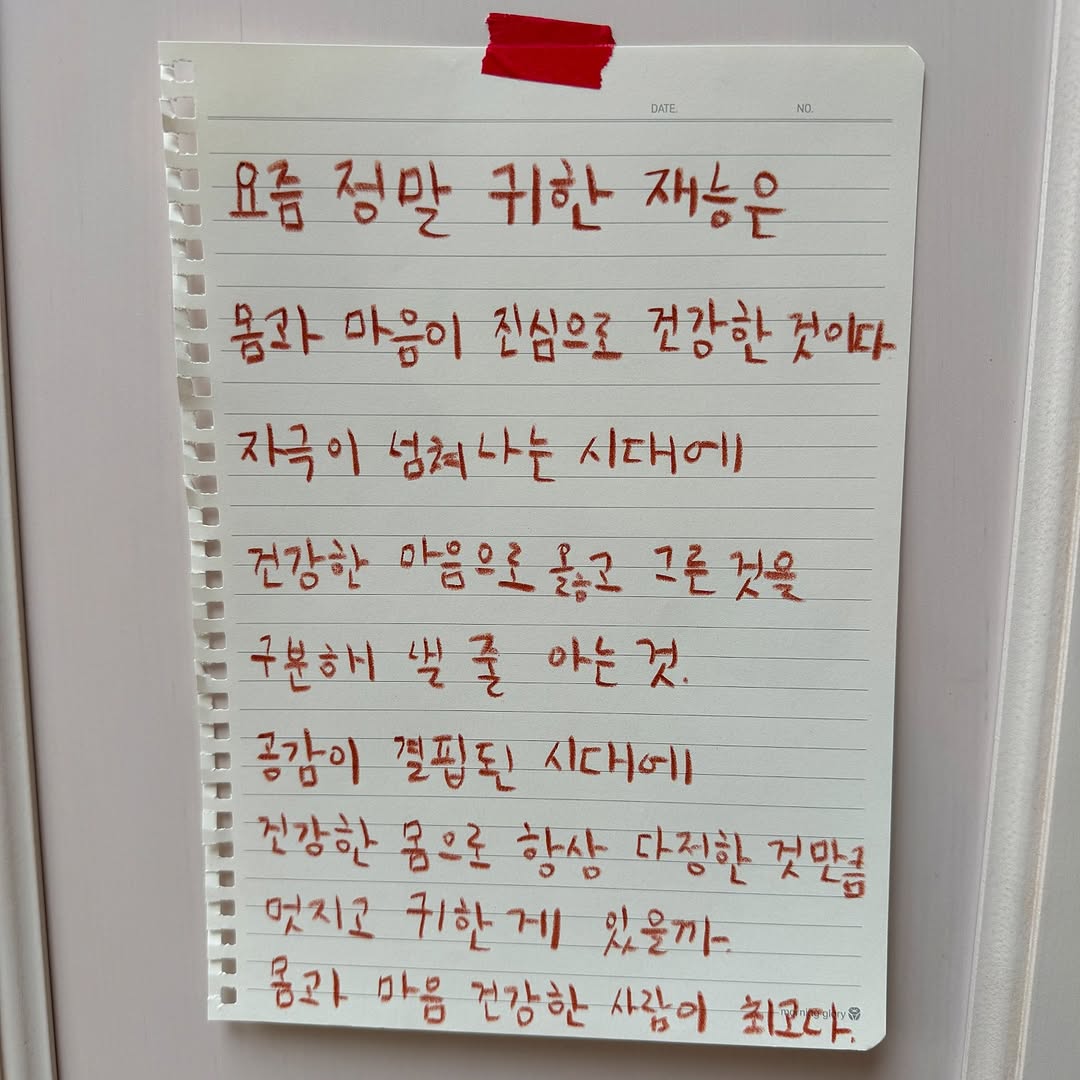 DATE. NO.
요즘 정말 귀한 재능은
몸과 마음이 진심으로 건강한 것이다
자극이 넘쳐나는 시대에
건강한 마음으로 옳고 그른 것을
구분해 낼 줄 아는 것.
공감이 결핍된 시대에
건강한 몸으로 항상 다정한 것만큼
멋지고 귀한 게 있을까.
몸과 마음 건강한 사람이 최고다.
morning glory